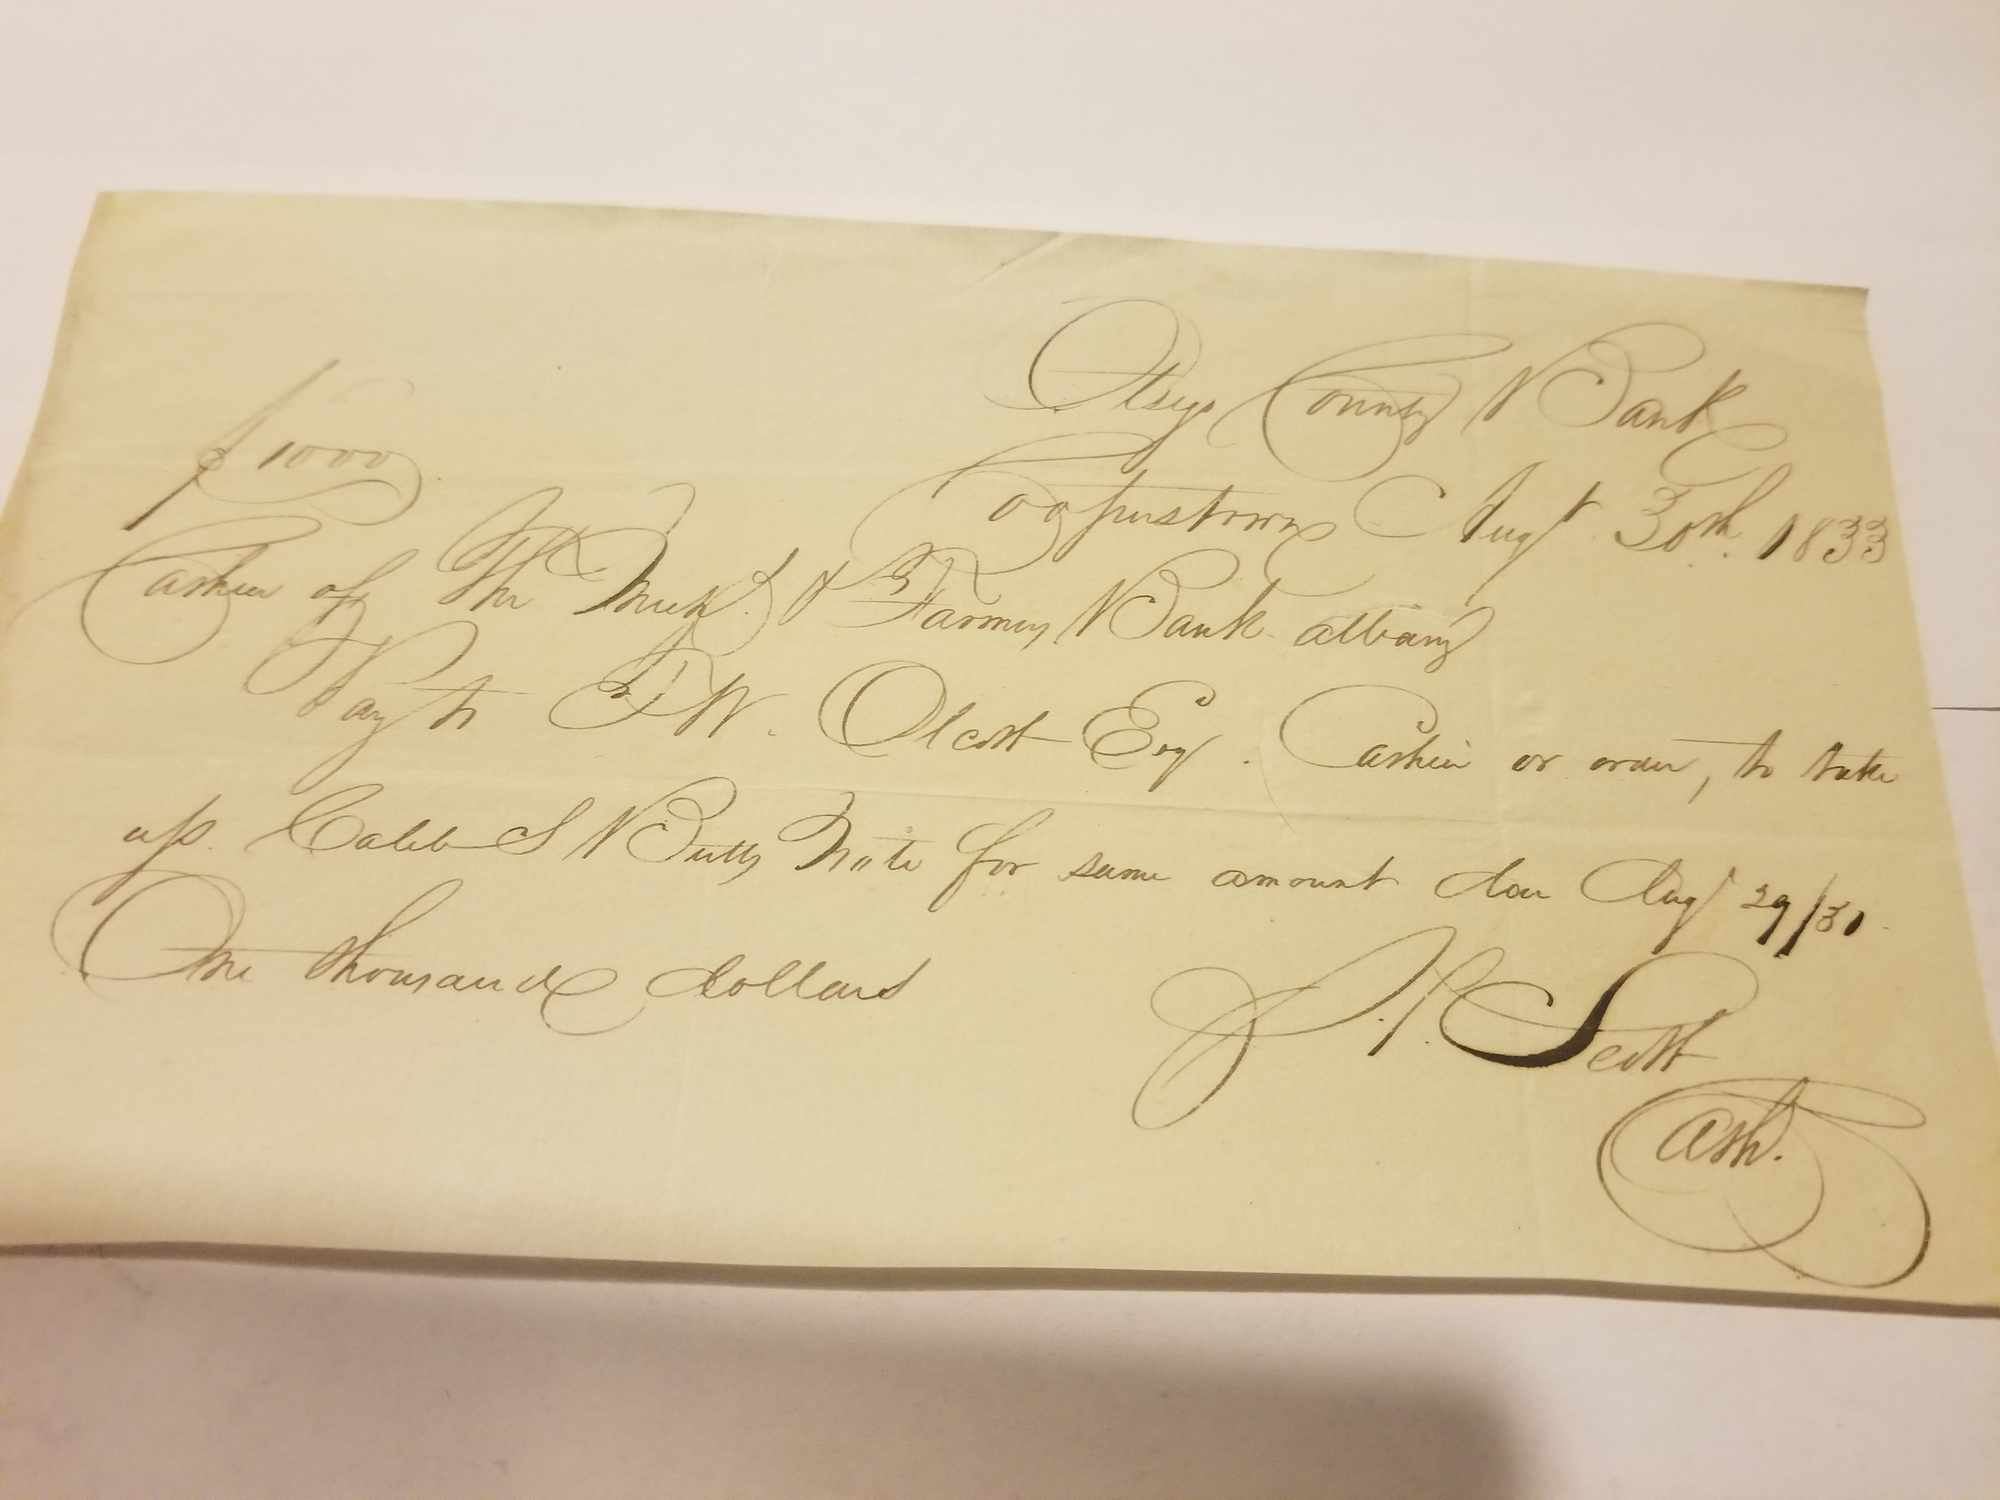 Otsego County Bank
$1000
Cooperstown Augt. 30th. 1833
Cashier of The Mech. & Farmers Bank Albany
Pay to T W. Olcott Esqr. Cashier or order, to take
up. Caleb S Butts Note for same amount due Aug 29/30.
One thousand dollars
Scott
Cash.